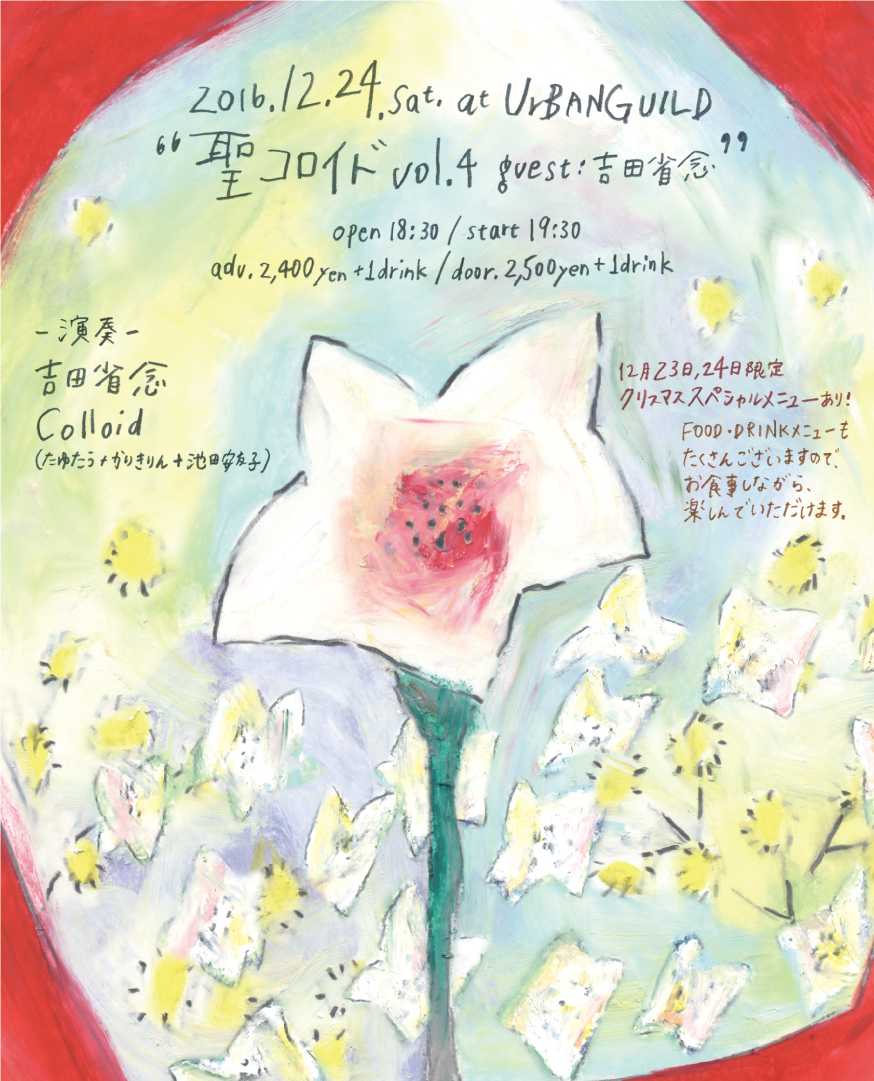 2016.12.24.Sat. at UrBANGUILD
“聖コロイド vol.4 guest:吉田省念”
open 18:30 / start 19:30
adv. 2,400yen +1drink / door. 2,500yen +1drink
－演奏－
吉田省念
Colloid
(たゆたう+かりきりん+池田安友子)
12月23日,24日限定
クリスマススペシャルメニューあり!
FOOD・DRINKメニューも
たくさんございますので、
お食事しながら、
楽しんでいただけます。